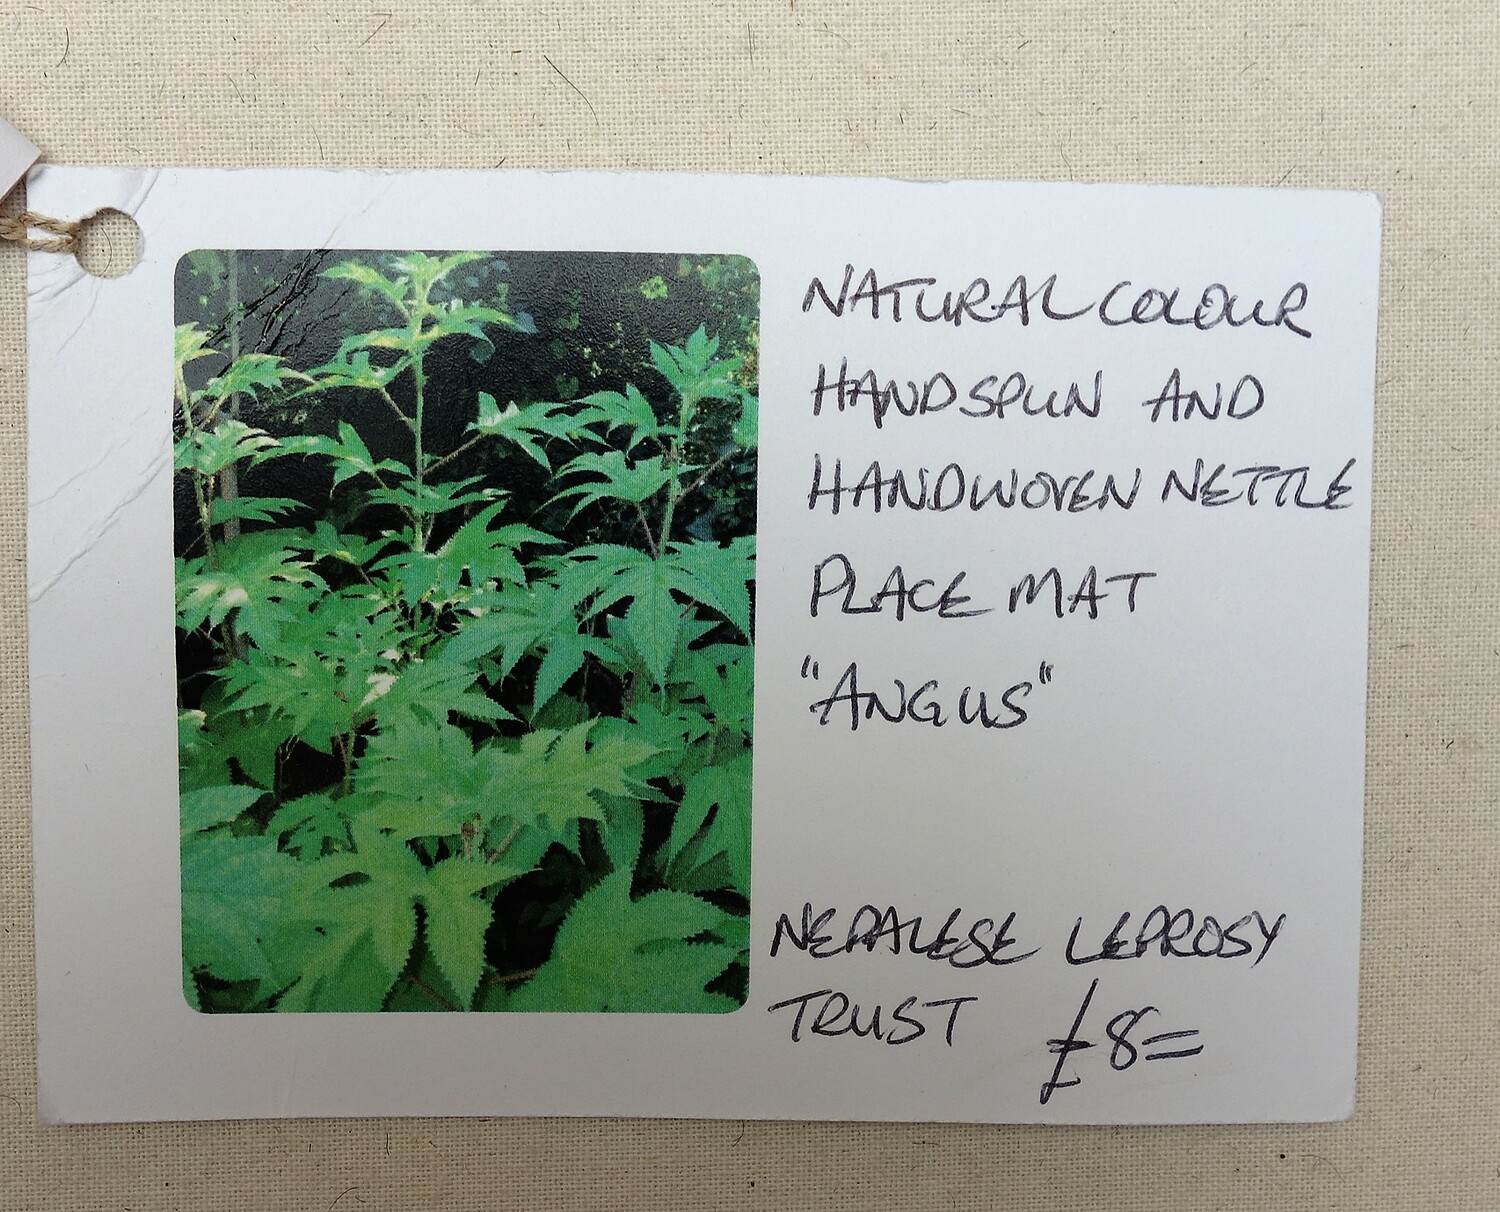 NATURAL COLOUR
HANDSPUN AND
HANDWOVEN NETTLE
PLACE MAT
"ANGUS"
NEPALESE LEPROSY
TRUST £8=